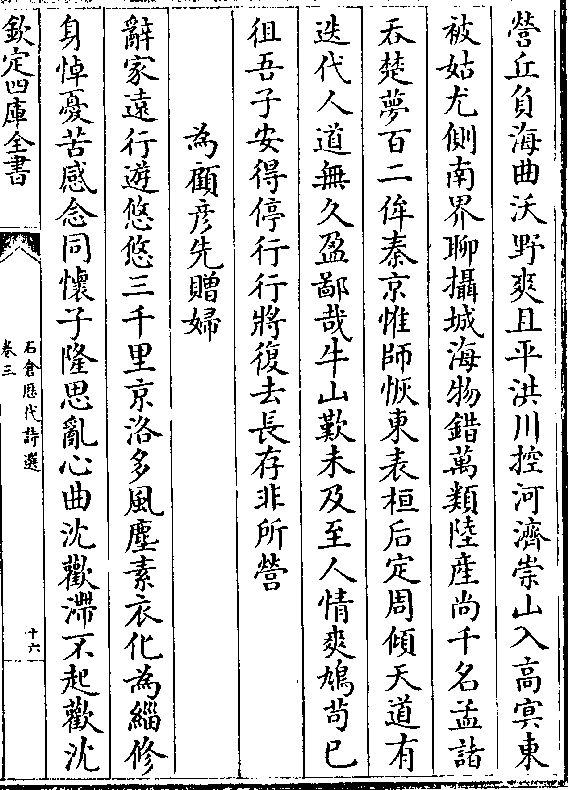 營丘負海曲沃野爽且平洪川控河濟崇山入高冥東
被姑尤側南界聊攝城海物錯萬類陸産尚千名孟諸
吞楚夢百二侔秦京惟師恢東表桓后定周傾天道有
迭代人道無久盈鄙哉牛山歎未及至人情爽鳩茍已
徂吾子安得停行行將復去長存非所營
為顧彦先贈婦
辭家遠行遊悠悠三千里京洛多風塵素衣化為緇修
身悼憂苦感念同懷子隆思亂心曲沈歡滯不起歡沈
欽定四庫全書
石倉歴代詩選
卷三
十六